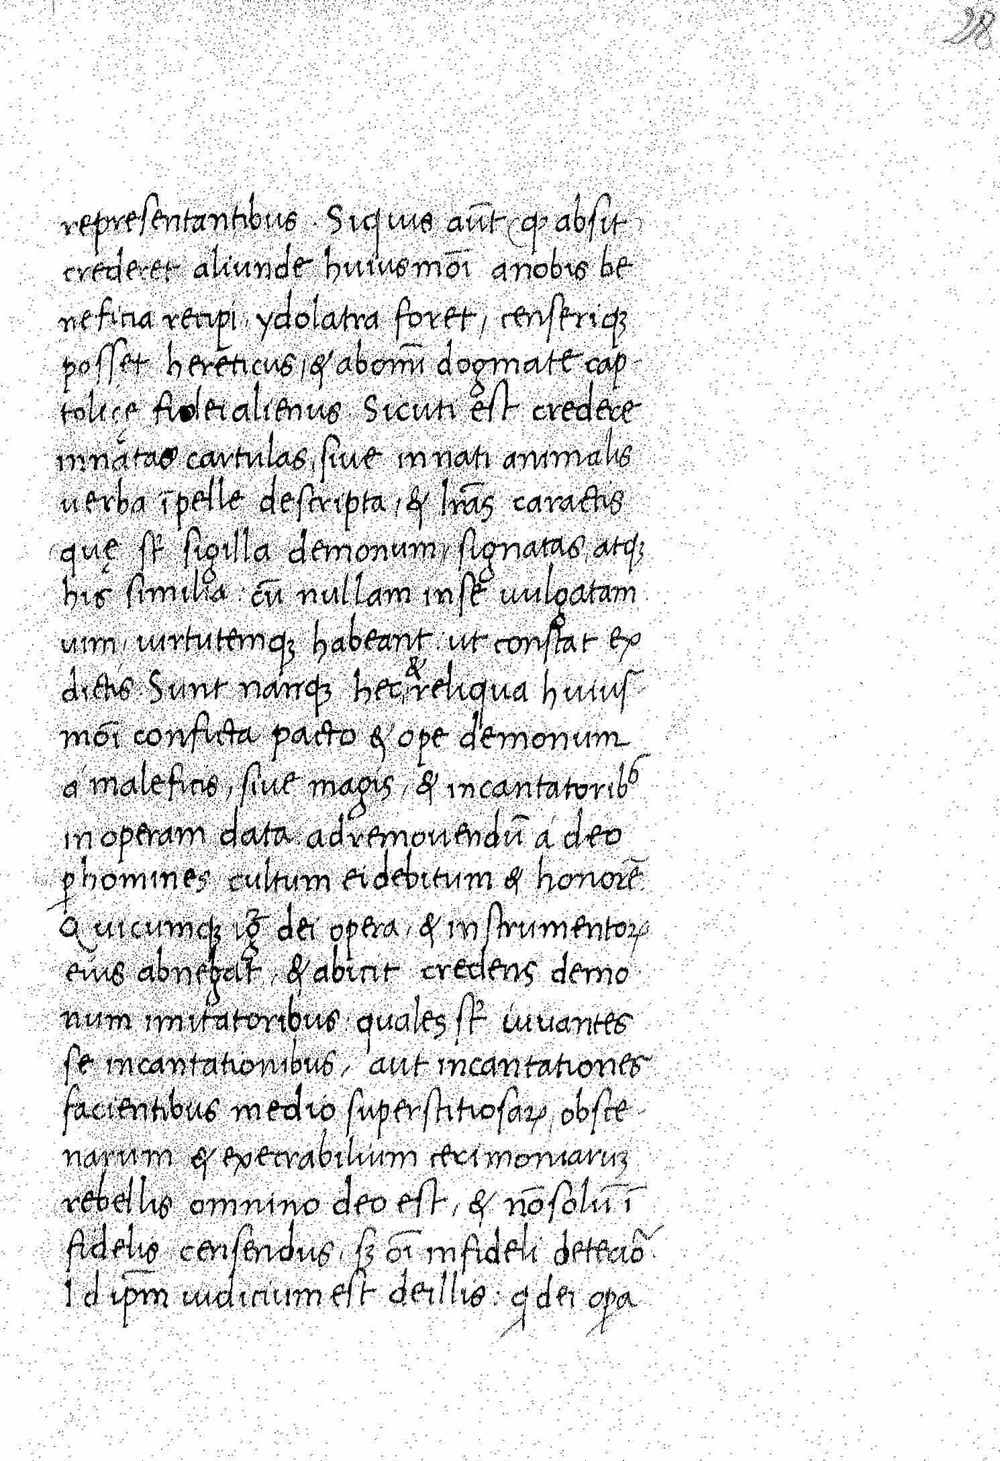 28
representantibus. Siquis aūt (qđ absit)
crederet aliunde huiusmōi anobis be
neficia recipi, ydolatra foret, censeriqꝫ
posset hereticus, & abomī dogmate cap
tolicę fidei alienus Sicuti est credere
innatas cartulas, siue innati animalis
uerba ī pelle descripta, & lrās caractis
quę st̄ sigilla demonum, signatas, atqꝫ
his similia: cū nullam inse uulgatam
uim, uirtutemqꝫ habeant: ut constat ex
dictis Sunt nanqꝫ hec, & reliqua huius
mōi conficta pacto & ope demonum
a maleficis, siue magis, & incantatoribꝰ
in operam data adremouendū a deo
ꝑhomines cultum eidebitum & honorē
Quicumqꝫ igr̄ dei opera, & instrumentoꝝ
eius abnegat, & abicit credens demo
num imitatoribus quales st̄ iuuantes
se incantationibus, aut incantationes
facientibus medio superstitiosaꝝ, obsce
narum & execrabilium cerimoniarum
rebellis omnino deo est, & nō solū ī
fidelis censendus, sꝫ oī infideli deteriō
Id ipm̄ iudicium est deillis: q dei oꝑa